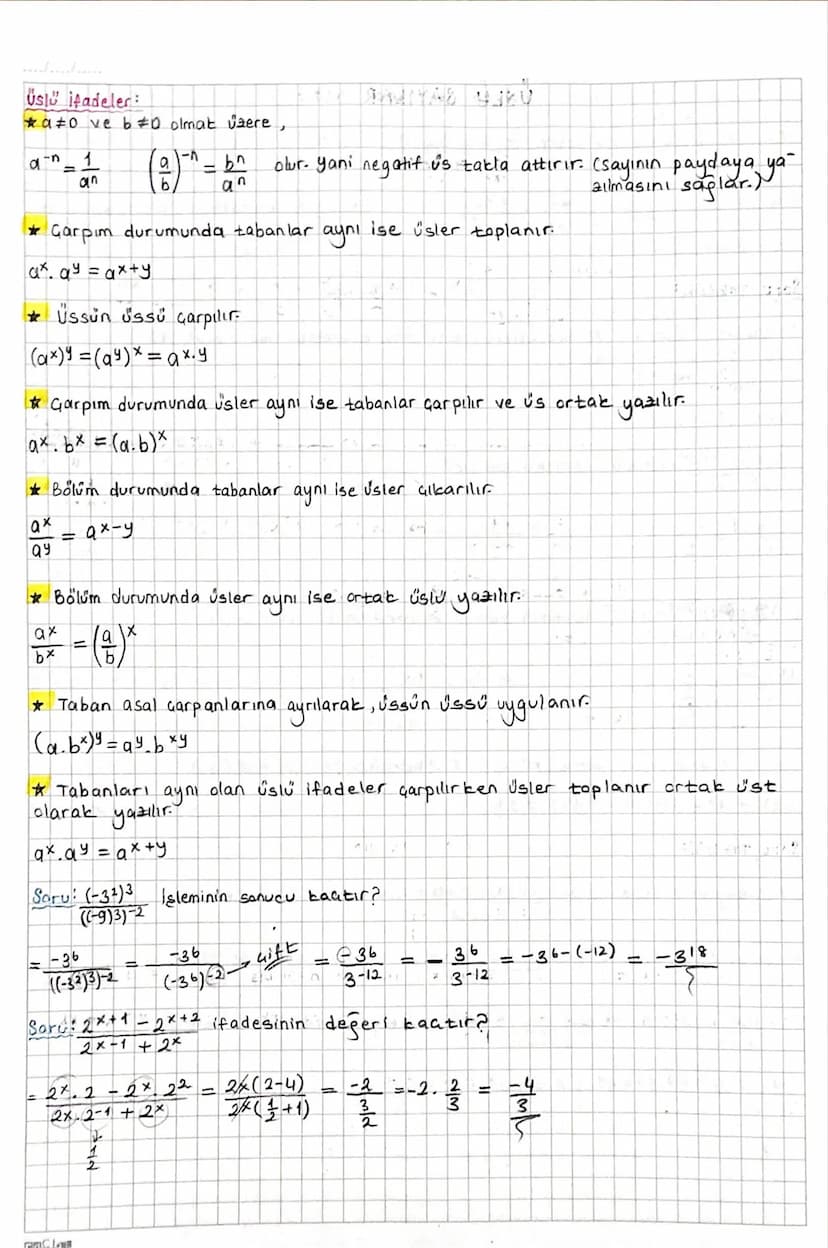 Üslü ifadeler:
★ a≠0 ve b≠0 olmak üzere,
a⁻ⁿ = 1/aⁿ (a/b)⁻ⁿ = bⁿ/aⁿ olur. yani negatif üs takla attırır. (sayının paydaya ya-
zılmasını sağlar.)
★ Çarpım durumunda tabanlar aynı ise üsler toplanır.
aˣ. aʸ = aˣ⁺ʸ
★ Üssün üssü çarpılır.
(aˣ)ʸ = (aʸ)ˣ = aˣ·ʸ
★ Çarpım durumunda üsler aynı ise tabanlar çarpılır ve üs ortak yazılır.
aˣ. bˣ = (a.b)ˣ
★ Bölüm durumunda tabanlar aynı ise üsler çıkarılır.
aˣ/aʸ = aˣ⁻ʸ
★ Bölüm durumunda üsler aynı ise ortak üslü yazılır.
aˣ/bˣ = (a/b)ˣ
★ Taban asal çarpanlarına ayrılarak, üssün üssü uygulanır.
(a.bˣ)ʸ = aʸ.bˣʸ
★ Tabanları aynı olan üslü ifadeler çarpılırken üsler toplanır ortak üst
olarak yazılır.
aˣ.aʸ = aˣ⁺ʸ
Soru: (-3²)³/((-9)3)⁻² işleminin sonucu kaçtır?
= -3⁶/((-3²)³)⁻² = -3⁶/(-3⁶)⁻² → çift = -3⁶/3⁻¹² = - 3⁶/3⁻¹² = -3⁶⁻⁽⁻¹²⁾ = -3¹⁸
Soru: 2ˣ⁺¹ - 2ˣ⁺²/2ˣ⁻¹ + 2ˣ ifadesinin değeri kaçtır?
= 2ˣ. 2 - 2ˣ. 2²/2ˣ. 2⁻¹ + 2ˣ = 2ˣ(2-4)/2ˣ(1/2+1) = -2/(3/2) = -2. 2/3 = -4/3
1/2